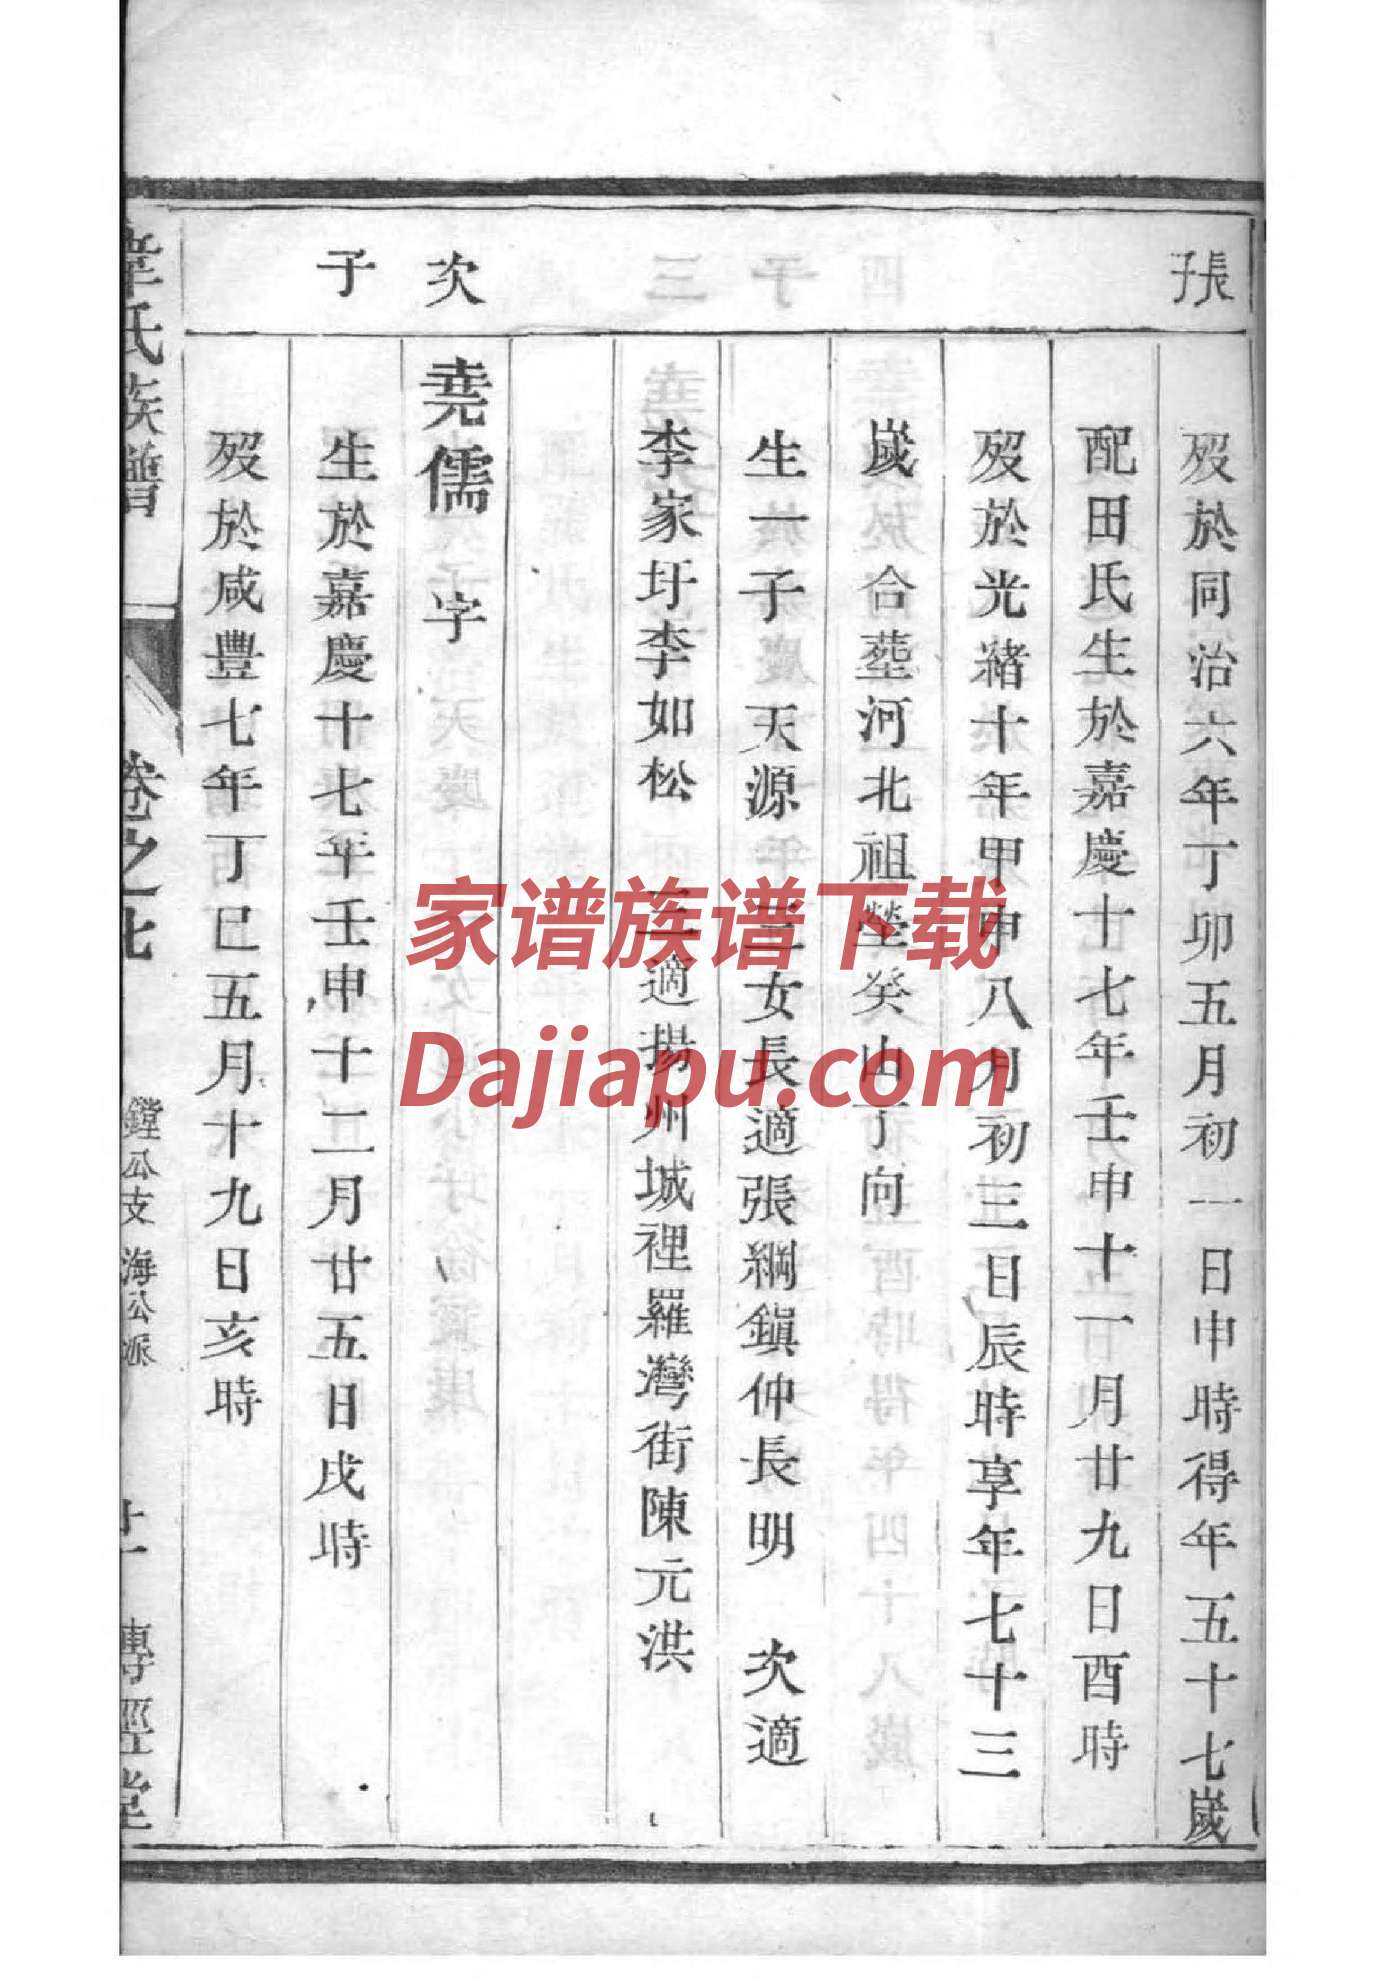 張子
歿於同治六年丁卯五月初一日申時得年五十七歲
配田氏生於嘉慶十七年壬申十一月廿九日酉時
歿於光緒十年甲申八月初三日辰時享年七十三
歲 合塟河北祖塋癸山丁向
生一子 天源 三女長適張綱鎭仲長明 次適
李家圩李如松 三適揚州城裡羅灣街陳元洪
次子
堯儒 字
生於嘉慶十七年壬申十二月廿五日戌時
歿於咸豐七年丁巳五月十九日亥時
韋氏族譜 卷之七 鏜公支 海公派 廿一 傳經堂
家谱族谱下载
Dajiapu.com